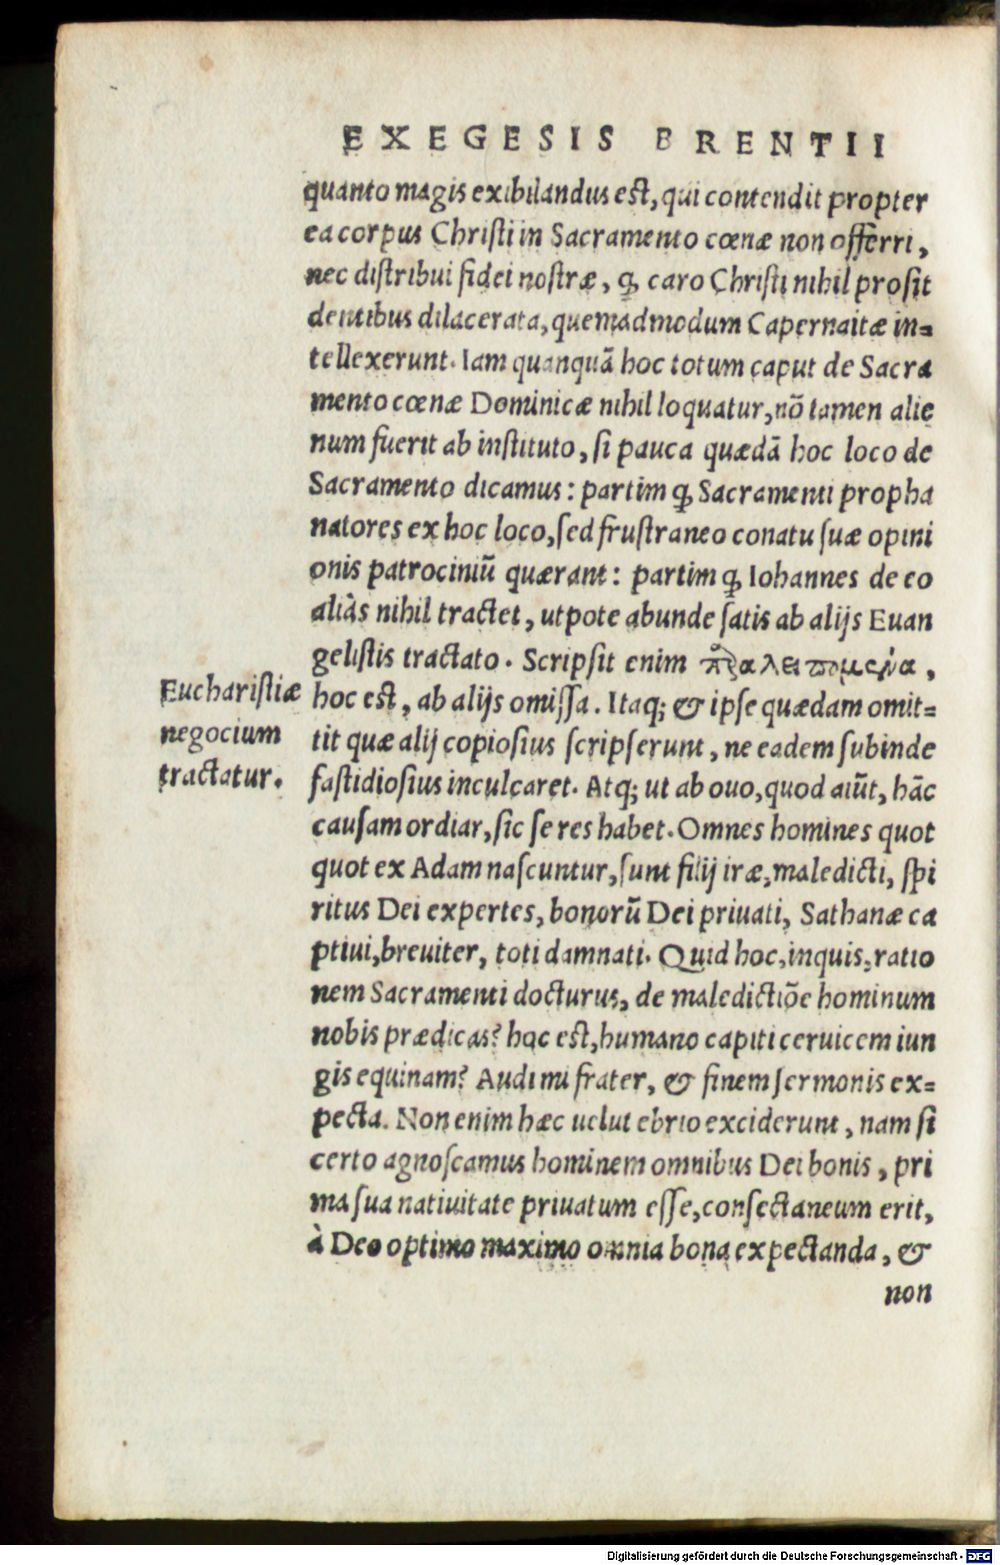 EXEGESIS BRENTII
quanto magis exibilandus est, qui contendit propter
ea corpus Christi in Sacramento cœnæ non offerri,
nec distribui fidei nostræ, ꝙ caro Christi nihil prosit
dentibus dilacerata, quemadmodum Capernaitæ in=
tellexerunt. Iam quanquā hoc totum caput de Sacra
mento cœnæ Dominicæ nihil loquatur, nō tamen alie
num fuerit ab instituto, si pauca quædā hoc loco de
Sacramento dicamus: partim ꝙ Sacramenti propha
natores ex hoc loco, sed frustraneo conatu suæ opini
onis patrociniū quærant: partim ꝙ Iohannes de eo
aliàs nihil tractet, utpote abunde satis ab alijs Euan
gelistis tractato. Scripsit enim παραλειπομενα,
Eucharistiæ
negocium
tractatur.
hoc est, ab alijs omissa. Itaq; & ipse quædam omit=
tit quæ alij copiosius scripserunt, ne eadem subinde
fastidiosius inculcaret. Atq; ut ab ouo, quod aiūt, hāc
causam ordiar, sic se res habet. Omnes homines quot
quot ex Adam nascuntur, sunt filij iræ, maledicti, spi
ritus Dei expertes, bonorū Dei priuati, Sathanæ ca
ptiui, breuiter, toti damnati. Quid hoc, inquis, ratio
nem Sacramenti docturus, de maledictiōe hominum
nobis prædicas? hoc est, humano capiti ceruicem iun
gis equinam? Audi mi frater, & finem sermonis ex=
pecta. Non enim hæc uelut ebrio exciderunt, nam si
certo agnoscamus hominem omnibus Dei bonis, pri
ma sua natiuitate priuatum esse, consectaneum erit,
à Deo optimo maximo omnia bona expectanda, &
non
Digitalisierung gefördert durch die Deutsche Forschungsgemeinschaft - DFG